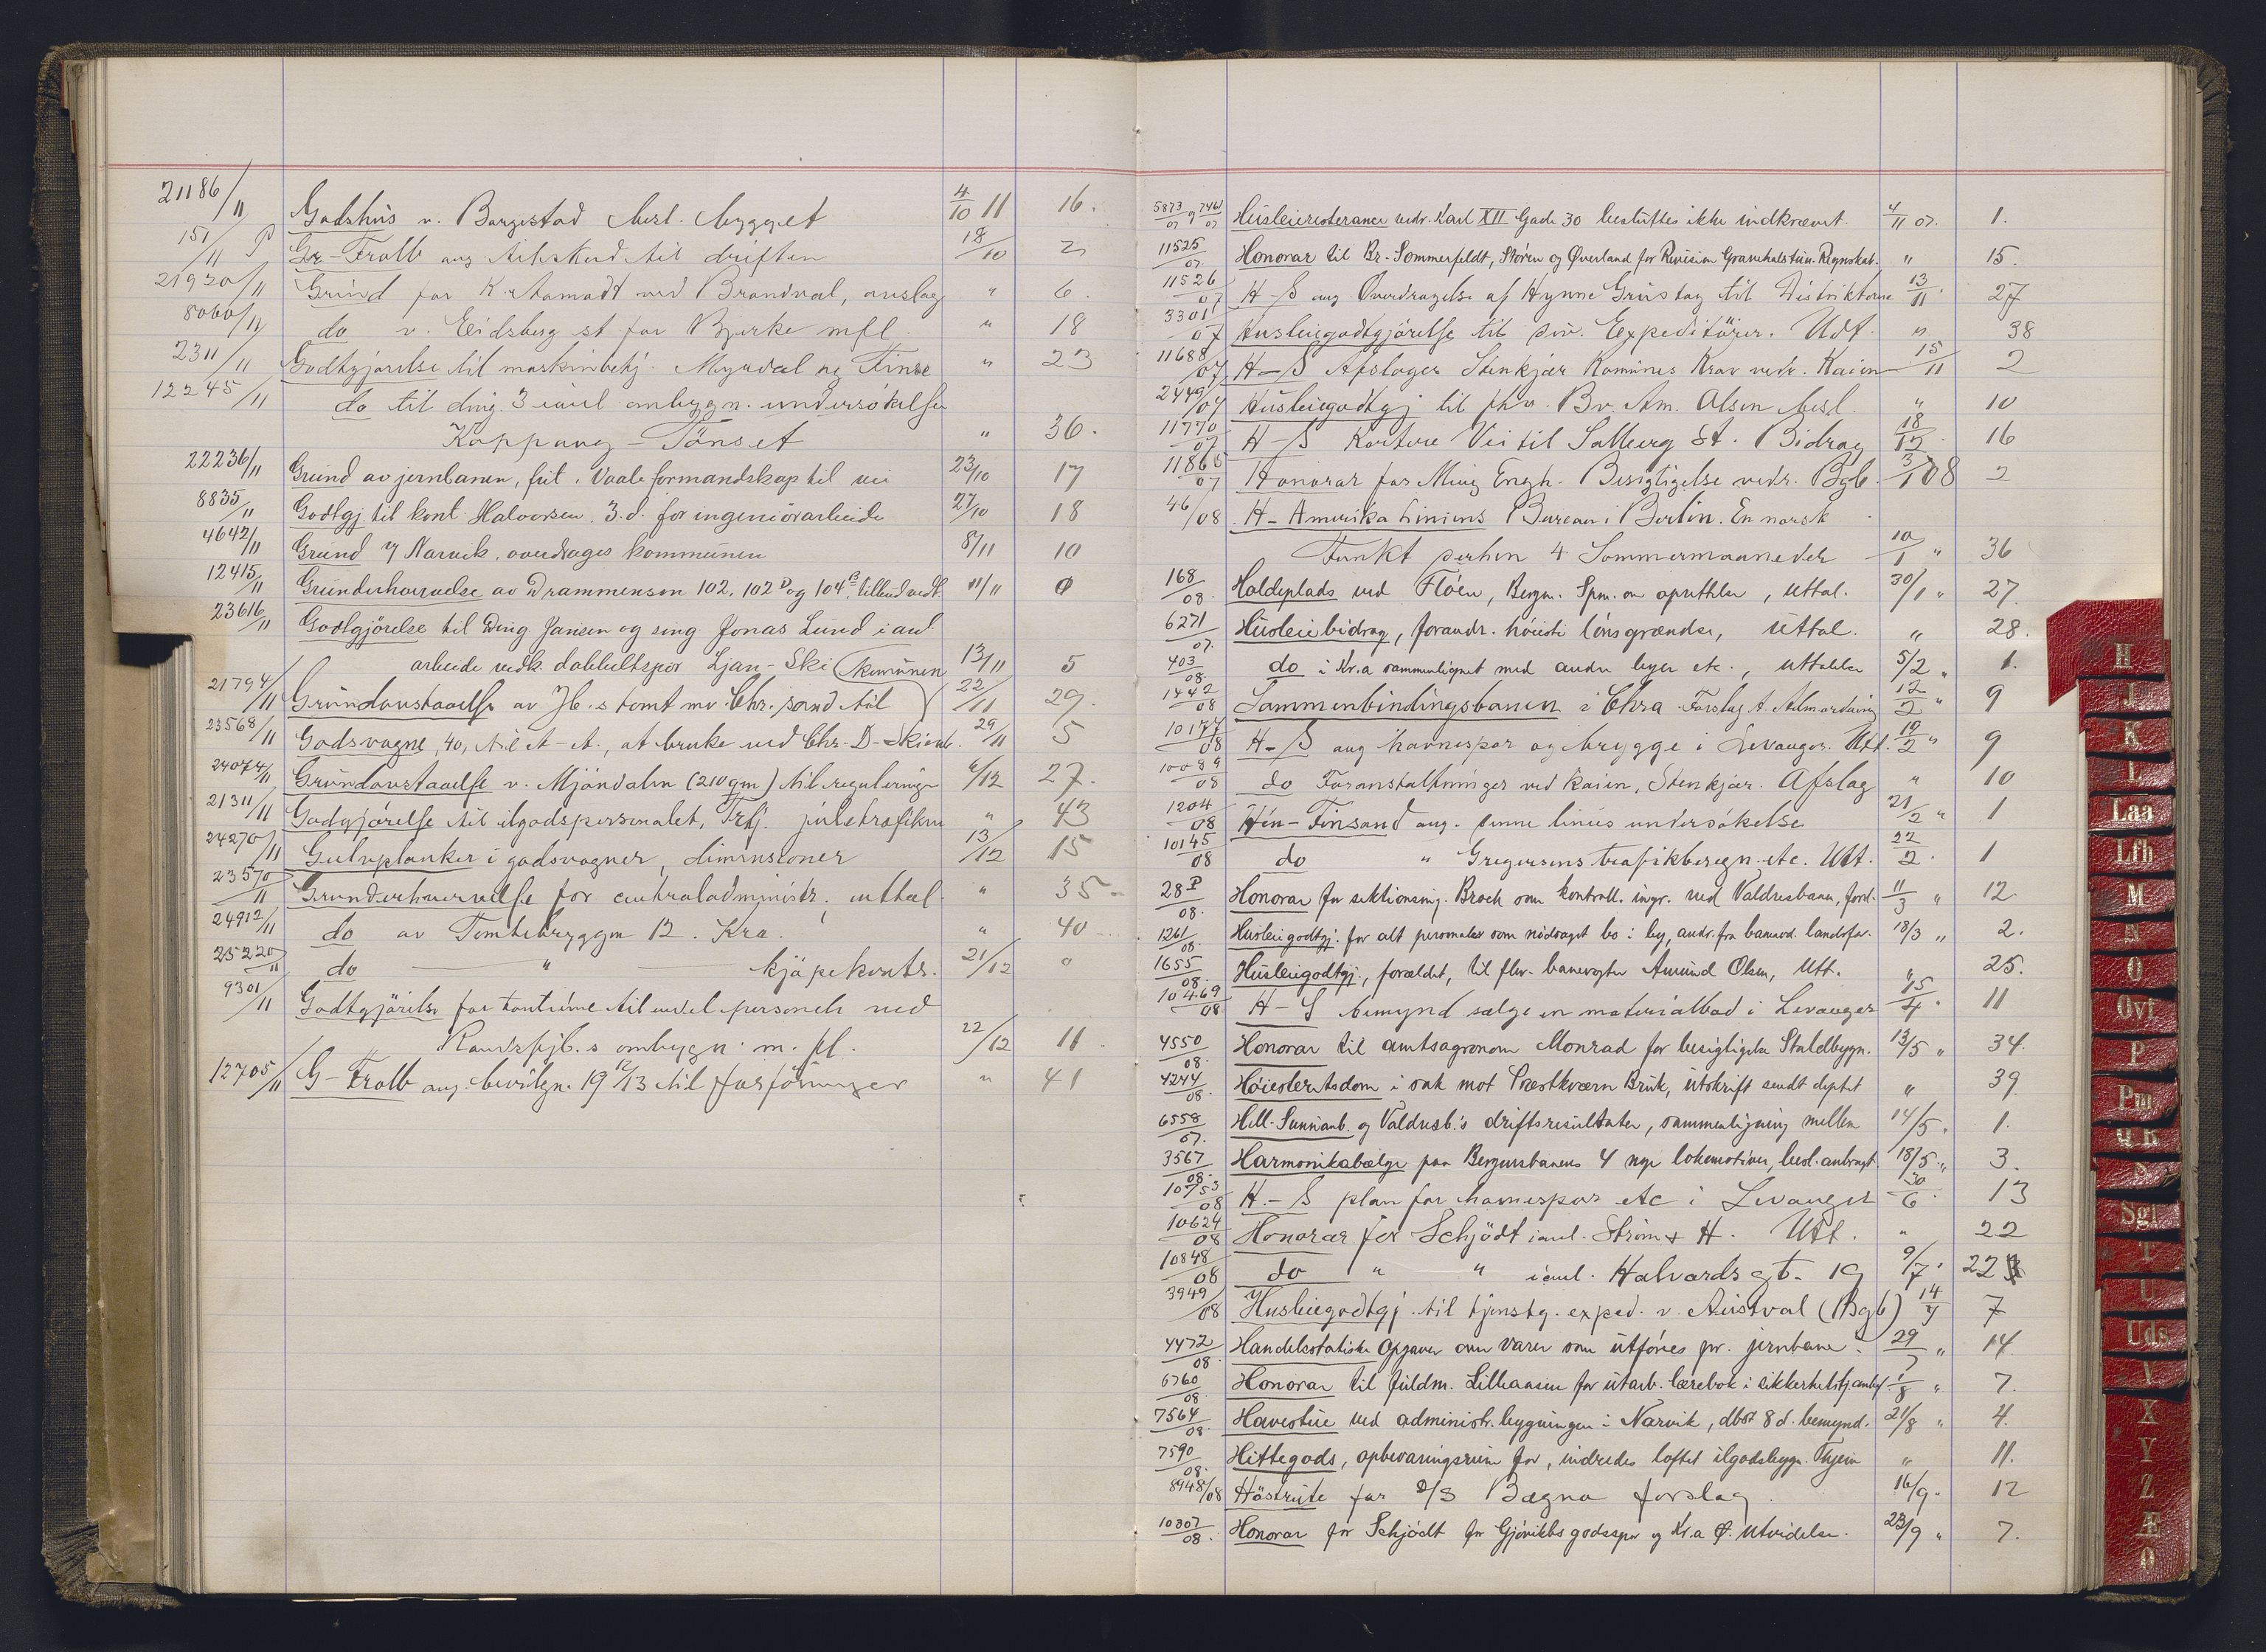 21186/11 Godshus v. Borgestad besl. bygget 4/10 11 16.
151/11 P Gr-Frolb ang tilskud til driften 18/10 2
21920/11 Grund for K. Aamodt ved Brandval, avslag " 6.
8060/11 do v. Eidsberg st for Bjerke mfl. " 18
2311/11 Godtgjørelse til maskinbetj. Myrdal og Finse " 23
12245/11 do til ding. 3 i anl ombygn. undersøkelse
Koppang – Tönset " 36.
22236/11 Grund av jernbanen, frit, Vaale formandskap til vei 23/10 17
8835/11 Godtgj til kont Halvorsen 3.d. for ingeniörarbeide 27/10 18
4642/11 Grund i Narvik, overdrages kommunen 8/11 10
12415/11 Grunderhvervelse av Drammensvn 102, 102 D og 104 B, tilbud vedt. 11/11 0
23616/11 Godtgjörelse til Ding Jansen og sing Jonas Lund i anl.
arbeide vedk. dobbeltspor Ljan-Ski 13/11 5
(komünen
21794/11 Grundavstaaelse av Jb.s tomt mv. Chr.sand til 22/11 29.
23568/11 Godsvogne, 40, til A-A., at bruke ved Chr-D-Skienb. 29/11 5
24074/11 Grundavstaaelse v. Mjöndalen (210 qm) til regulering 4/12 27.
21311/11 Godgjörelse til ilgodspersonalet, Trhj. juletrafikken " 43
24270/11 Gulvplanker i godsvogner, dimensioner 13/12 15
23570/11 Grunderhvervelse for centraladministr. uttal. " 35
24912/11 do av Tomtebryggen 12. Kra. " 40
25220/11 do " kjöpekontr. 21/12 "
9301/11 Godtgjörelse for tantieme til endel personale ved
Randsfjb.s ombygn. m. fl. 22/12 11.
12705/11 G-Frolb ang. bevilgn. 19 12/13 til forföininger " 41
5873/07 og 7461/07 Husleieresterance vedr. Karl XII Gade 30 besluttes ikke indkrævet. 4/11 07. 1.
11525/07 Honorar til Br. Sommerfeldt, Stören og Överland for Revision Gravehalstun. Regnskab. " 15.
11526/07 H-S ang Overdragelse af Hynne Grustag til Distriktene 13/11 27
3301/07 Husleiegodtgjörelse til Expeditörer. Udt. " 38
11688/07 H-S Afslager Stenkjær Komunes Krav vedr. Kaien 15/11 2
2449/07 Husleiegodtgj til fhv. Bv. Am. Olsen besl. " 10
11770/07 H-S Kortere Vei til Salberg St. Bidrag 18/12 16
11865/07 Honorar for Ming Engh. Besigtigelse vedr. Bgb. 3/1 08 2
46/08 H-Amerika Liniens Bureau i Berlin. En norsk
Funkt derhen 4 Sommermaaneder 10/1 " 36
168/08. Holdeplads ved Flöen, Bergn. Spm. om oprettelse, uttal. 30/1 " 27.
6271/07. Husleiebidrag, forandr. höieste lönsgrændse, Uttal. " 28.
403/08. do i Kr.a sammenlignet med andre byer etc., uttalelse 5/2 " 1.
1442/08 Sammenbindingsbanen i Chra. Forslag 12/2 " 9
10177/08 H-S ang havnespor og brygge i Levanger. Utt. 10/2 " 9
10089/08 do Foranstaltninger ved kaien, Stenkjær. Afslag " 10
1204/08 Hen-Finsand ang. denne linies undersökelse 21/2 " 1
10145/08 do " Gregersens trafikberegn. etc. Utt. 22/2 . 1
28 P/08. Honorar for sektionsing. Broch som kontroll. ingr. ved Valdresbanen, ford. 11/3 " 12.
1261/08. Husleiegodtgj. for alt personale som nödsaget bo i by, andr. fra banevd. landsfor. 18/3 " 2.
1655/08. Husleiegodtgj., forældet, til fhv. banevogter Amund Olsen, Utt. " 25.
10469/08 H-S bemynd sælge en materialbod i Levanger 15/4 " 11
4550/08. Honorar til amtsagronom Monrad for besigtigelse Staldbygn. 13/5 " 34.
4244/08. Höiesteretsdom i sak mot Præstkværn Bruk, utskrift sendt deptet " 39.
6558/07. Hell-Sunnanb. og Valdresb.'s driftsresultater, sammenligning mellem 14/5 " 1.
3567/08. Harmonikabælge paa Bergensbanens 4 nye lokomotiver, besl. anbragt 18/5 " 3.
10753/08 H-S plan for havnespor etc i Levanger 30/6 . 13
10624/08 Honorar for Schjödt i anl. Ström & H. Utt. " 22
10848/08 do " " i anl. Halvards gt. 19 9/7 . 22
3949/08 Husleiegodtgj. til tjenstg. exped. v. Austval (Bgb) 14/7 7
4472/08. Handelsstatistiske Opgaver over varer som utföres pr. jernbane. 29/7 " 14.
6760/08. Honorar til fuldm. Lilhansen for utarb. lærebok i sikkerhetstj. anbef. 1/8 " 7.
7564/08. Havestue ved administr. bygningen i Narvik, dbst 8d. bemynd. 21/8 " 4.
7590/08. Hittegods, opbevaringsrum for, indredes loftet ilgodsbygn. Thjem " 11.
8948/08 Höstrute for D/S Bægna forslag 16/9. 12
10307/08. Honorar for Schjödt for Gjöviklbs godsspor og Kr.a Ö. utvidelse. 23/9 " 7.
H
J
K
L
Laa
Lfh
M
N
O
Ovf
P
Pm
Q R
S
Sgl
T
U
Uds
V
X
Y
Z
Æ
Ø